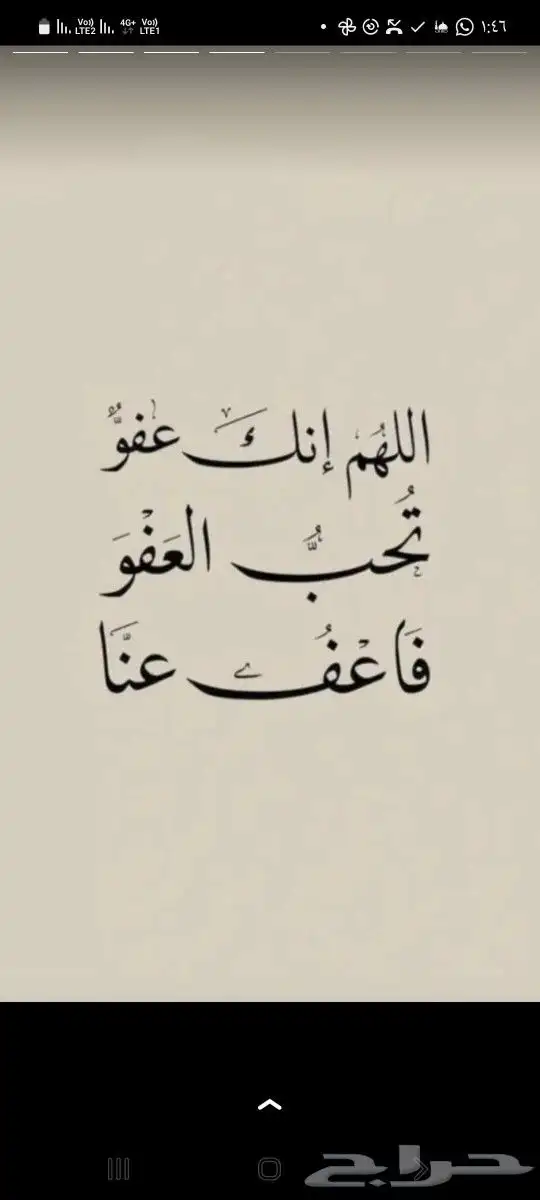 Vo) LTE2 4G+ Vo) LTE1 ١:٤٦
اللهُم إنكَ عفوٌّ
تُحبُّ العَفْوَ
فَاعْفُ عنَّا
حراج